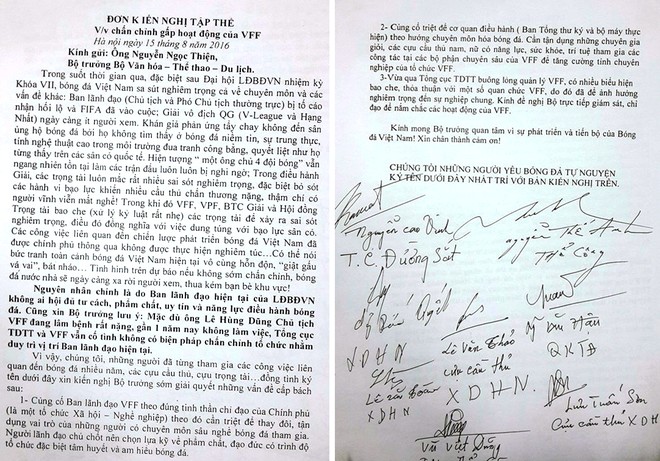 ĐƠN KIẾN NGHỊ TẬP THỂ
V/v chấn chỉnh gấp hoạt động của VFF
Hà nội ngày 15 tháng 8 năm 2016
Kính gửi: Ông Nguyễn Ngọc Thiện,
Bộ trưởng Bộ Văn hóa – Thể thao – Du lịch.
Trong suốt thời gian qua, đặc biệt sau Đại hội LĐBĐVN nhiệm kỳ
Khóa VII, bóng đá Việt Nam sa sút nghiêm trọng cả về chuyên môn và các
vấn đề khác: Ban lãnh đạo (Chủ tịch và Phó Chủ tịch thường trực) bị tố cáo
nhận hối lộ và FIFA đã vào cuộc; Giải vô địch QG (V-League và Hạng
Nhất) ngày càng ít người xem. Khán giả phản ứng tẩy chay không đến sân
ủng hộ bóng đá bởi họ không tìm thấy ở bóng đá niềm tin, sự trung thực,
tính nghệ thuật cao trong môi trường đua tranh công bằng, quyết liệt như họ
từng thấy trên các sân cỏ quốc tế. Hiện tượng “ một ông chủ 4 đội bóng” vẫn
ngang nhiên tồn tại làm các trận đấu luôn luôn bị nghi ngờ; Trong điều hành
Giải, các trọng tài luôn mắc rất nhiều sai sót nghiêm trọng, đặc biệt bỏ sót
các hành vi bạo lực khiến nhiều cầu thủ chấn thương nặng, thậm chí có
người vĩnh viễn mất nghề! Trong khi đó VFF, VPF, BTC Giải và Hội đồng
Trọng tài bao che (xử lý kỷ luật rất nhẹ) các trọng tài để xảy ra sai sót
nghiêm trọng, điều đó đồng nghĩa với việc dung túng với bạo lực sân cỏ.
Các công việc liên quan đến chiến lược phát triển bóng đá Việt Nam đã
được chính phủ thông qua không được thực hiện nghiêm túc...Có thể nói
bức tranh toàn cảnh bóng đá Việt Nam hiện tại vô cùng hỗn độn, “giật gấu
vá vai”, bát nháo... Tình hình trên dự báo nếu không sớm chấn chỉnh, bóng
đá nước nhà sẽ ngày càng xa rời người xem, thua kém bạn bè khu vực!
Nguyên nhân chính là do Ban lãnh đạo hiện tại của LĐBĐVN
không ai hội đủ tư cách, phẩm chất, uy tín và năng lực điều hành bóng
đá. Cũng xin Bộ trưởng lưu ý: Mặc dù ông Lê Hùng Dũng Chủ tịch
VFF đang lâm bệnh rất nặng, gần 1 năm nay không làm việc, Tổng cục
TDTT và VFF vẫn cố tình không có biện pháp chấn chỉnh tổ chức nhằm
duy trì vị trí Ban lãnh đạo hiện tại.
Vì vậy, chúng tôi, những người đã từng tham gia các công việc liên
quan đến bóng đá nhiều năm, các cựu cầu thủ, cựu trọng tài....đồng tình ký
tên dưới đây xin kiến nghị Bộ trưởng sớm giải quyết những vấn đề cấp bách
sau:
1- Củng cố Ban lãnh đạo VFF theo đúng tinh thần chỉ đạo của Chính phủ
(là một tổ chức Xã hội – Nghề nghiệp) theo đó cần triệt để thay đổi, tận
dụng vai trò của những người có chuyên môn sâu nghề bóng đá tham gia.
Người lãnh đạo chủ chốt nên chọn lựa kỹ về phẩm chất, đạo đức có trình độ
tổ chức đặc biệt tâm huyết và am hiểu bóng đá.
2- Củng cố triệt để cơ quan điều hành ( Ban Tổng thư ký và bộ máy thực
hiện) theo hướng chuyên môn hóa bóng đá. Cần tận dụng những chuyên gia
giỏi, các cựu cầu thủ nam, nữ có năng lực, sức khỏe, trí tuệ tham gia các
công tác tại các bộ phận chuyên sâu của VFF để tăng cường tính chuyên
nghiệp của tổ chức VFF.
3-Vừa qua Tổng cục TDTT buông lỏng quản lý VFF, có nhiều biểu hiện
bao che, thỏa thuận với một số quan chức VFF, do đó đã để ảnh hưởng
nghiêm trọng đến sự nghiệp chung. Kính đề nghị Bộ trực tiếp giám sát, chỉ
đạo để nắm chắc các hoạt động của VFF.
Kính mong Bộ trưởng quan tâm vì sự phát triển và tiến bộ của Bóng
đá Việt Nam! Xin chân thành cảm ơn!
CHÚNG TÔI NHỮNG NGƯỜI YÊU BÓNG ĐÁ TỰ NGUYỆN
KÝ TÊN DƯỚI ĐÂY NHẤT TRÍ VỚI BẢN KIẾN NGHỊ TRÊN.
Nguyễn Cao Vinh
Nguyễn Thế Anh
T.C. Đường Sắt
Thể Công
XDHN
Lê Văn
cựu cầu thủ
QKTĐ
XDHN
XDHN.
Lưu Tuấn Sơn
Cựu cầu thủ XDH
Vũ Việt Dũng